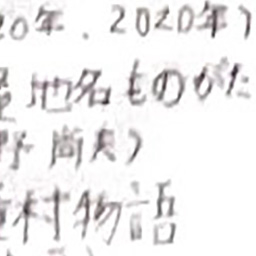 20年、2020年)
地名ものがた
野尚夫)
村物語